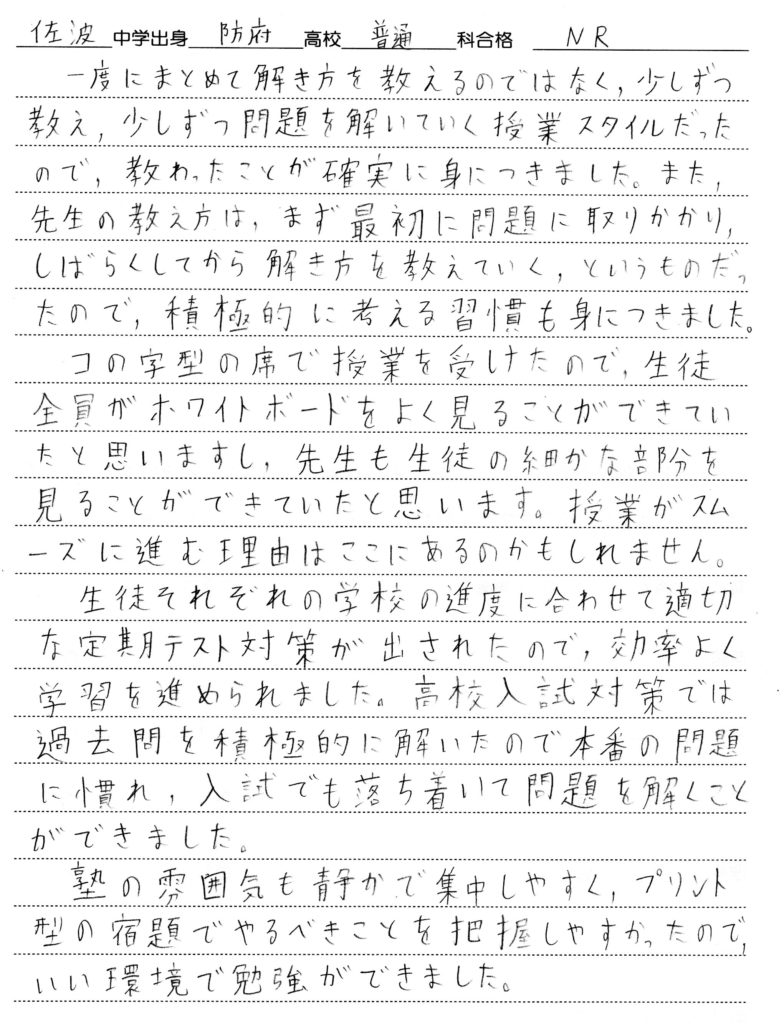 佐波 中学出身 防府 高校 普通 科合格 NR
一度にまとめて解き方を教えるのではなく,少しずつ
教え,少しずつ問題を解いていく授業スタイルだった
ので,教わったことが確実に身につきました。また,
先生の教え方は,まず最初に問題に取りかかり,
しばらくしてから解き方を教えていく,というものだっ
たので,積極的に考える習慣も身につきました。
コの字型の席で授業を受けたので,生徒
全員がホワイトボードをよく見ることができてい
たと思いますし,先生も生徒の細かな部分を
見ることができていたと思います。授業がスム
ーズに進む理由はここにあるのかもしれません。
生徒それぞれの学校の進度に合わせて適切
な定期テスト対策が出されたので,効率よく
学習を進められました。高校入試対策では
過去問を積極的に解いたので本番の問題
に慣れ,入試でも落ち着いて問題を解くこと
ができました。
塾の雰囲気も静かで集中しやすく,プリント
型の宿題でやるべきことを把握しやすかったので,
いい環境で勉強ができました。